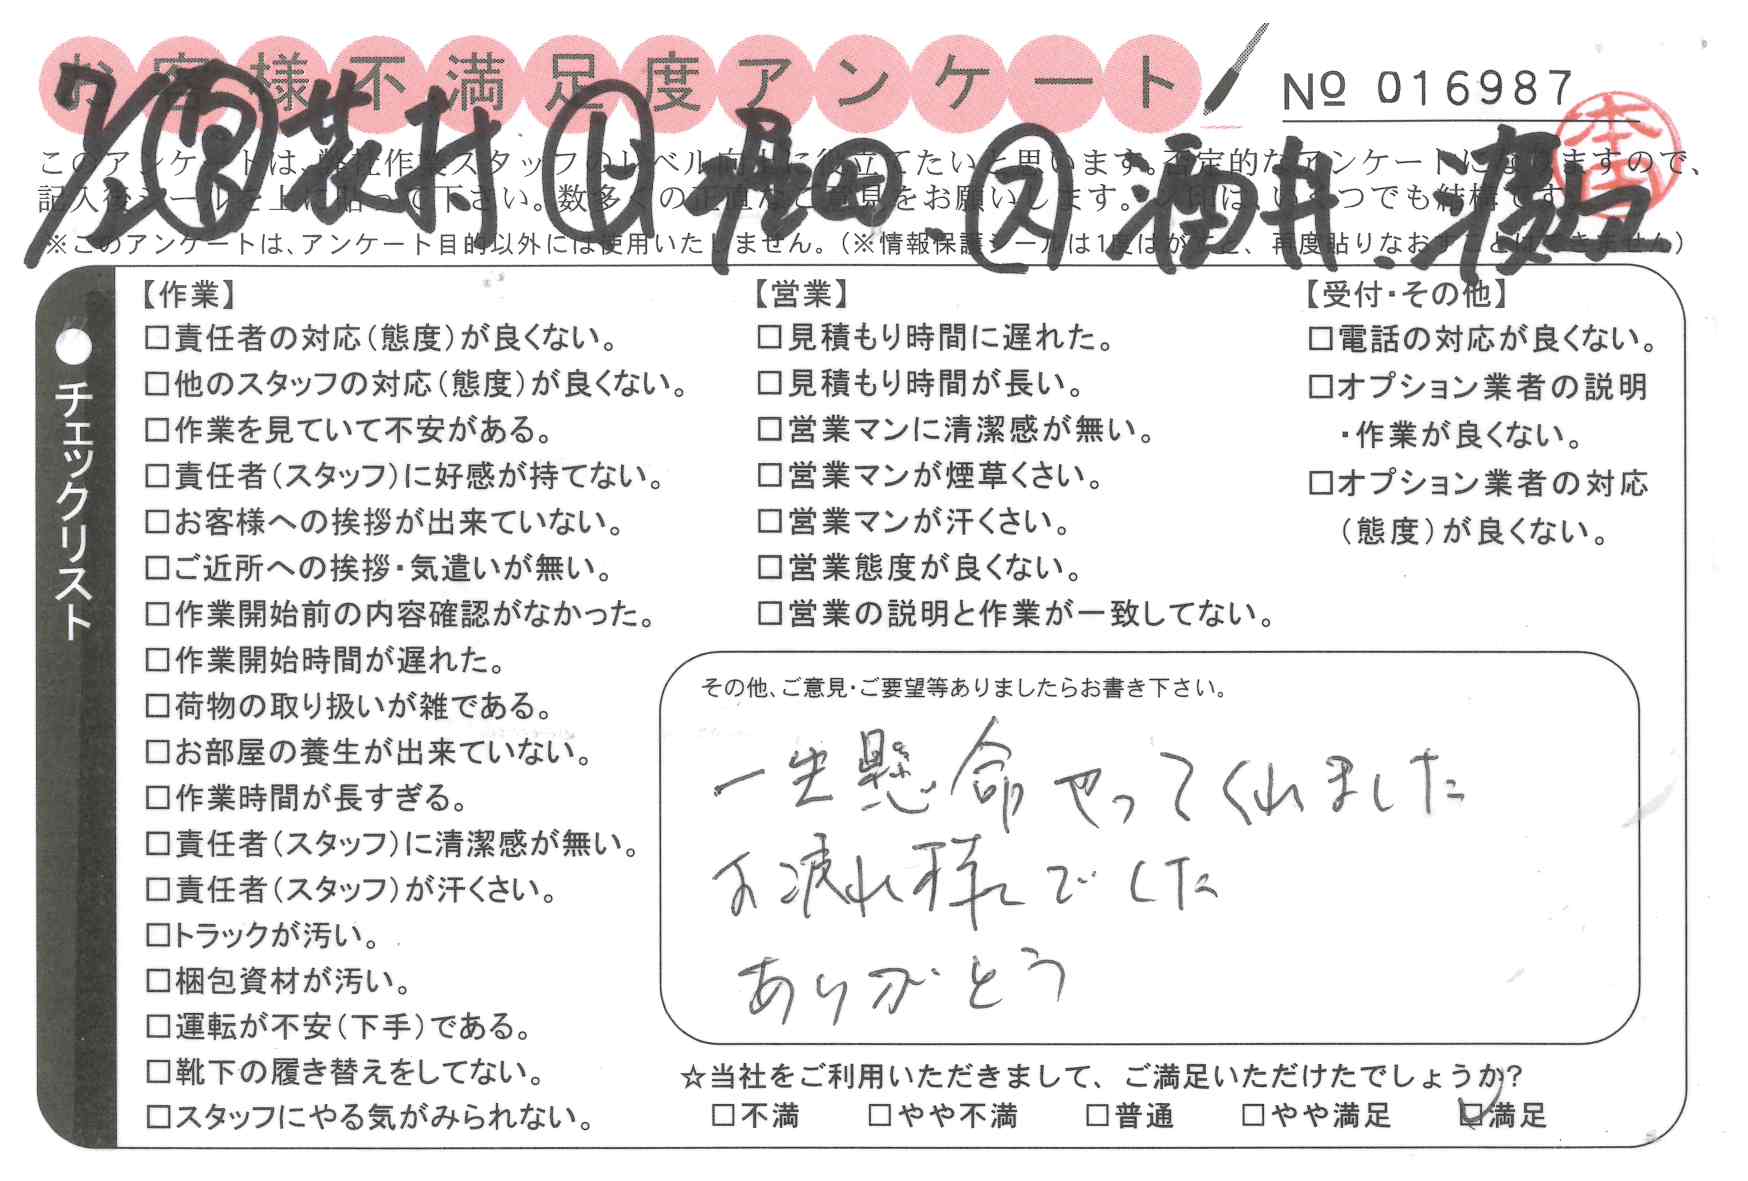 お客様不満足度アンケート
No 016987
本田
このアンケートは、弊社作業スタッフのレベル向上に役立てたいと思います。否定的なアンケートになりますので、
記入後シールを上に貼って下さい。数多くの正直なご意見をお願いします。レ印は、いくつでも結構です。
※このアンケートは、アンケート目的以外には使用いたしません。(※情報保護シールは1度はがすと、再度貼りなおすことはできません)
●チェックリスト
【作業】
□責任者の対応(態度)が良くない。
□他のスタッフの対応(態度)が良くない。
□作業を見ていて不安がある。
□責任者(スタッフ)に好感が持てない。
□お客様への挨拶が出来ていない。
□ご近所への挨拶・気遣いが無い。
□作業開始前の内容確認がなかった。
□作業開始時間が遅れた。
□荷物の取り扱いが雑である。
□お部屋の養生が出来ていない。
□作業時間が長すぎる。
□責任者(スタッフ)に清潔感が無い。
□責任者(スタッフ)が汗くさい。
□トラックが汚い。
□梱包資材が汚い。
□運転が不安(下手)である。
□靴下の履き替えをしてない。
□スタッフにやる気がみられない。
【営業】
□見積もり時間に遅れた。
□見積もり時間が長い。
□営業マンに清潔感が無い。
□営業マンが煙草くさい。
□営業マンが汗くさい。
□営業態度が良くない。
□営業の説明と作業が一致してない。
【受付・その他】
□電話の対応が良くない。
□オプション業者の説明
・作業が良くない。
□オプション業者の対応
(態度)が良くない。
その他、ご意見・ご要望等ありましたらお書き下さい。
一生懸命やってくれました
お疲れ様でした
ありがとう
☆当社をご利用いただきまして、ご満足いただけたでしょうか?
□不満 □やや不満 □普通 □やや満足 □満足